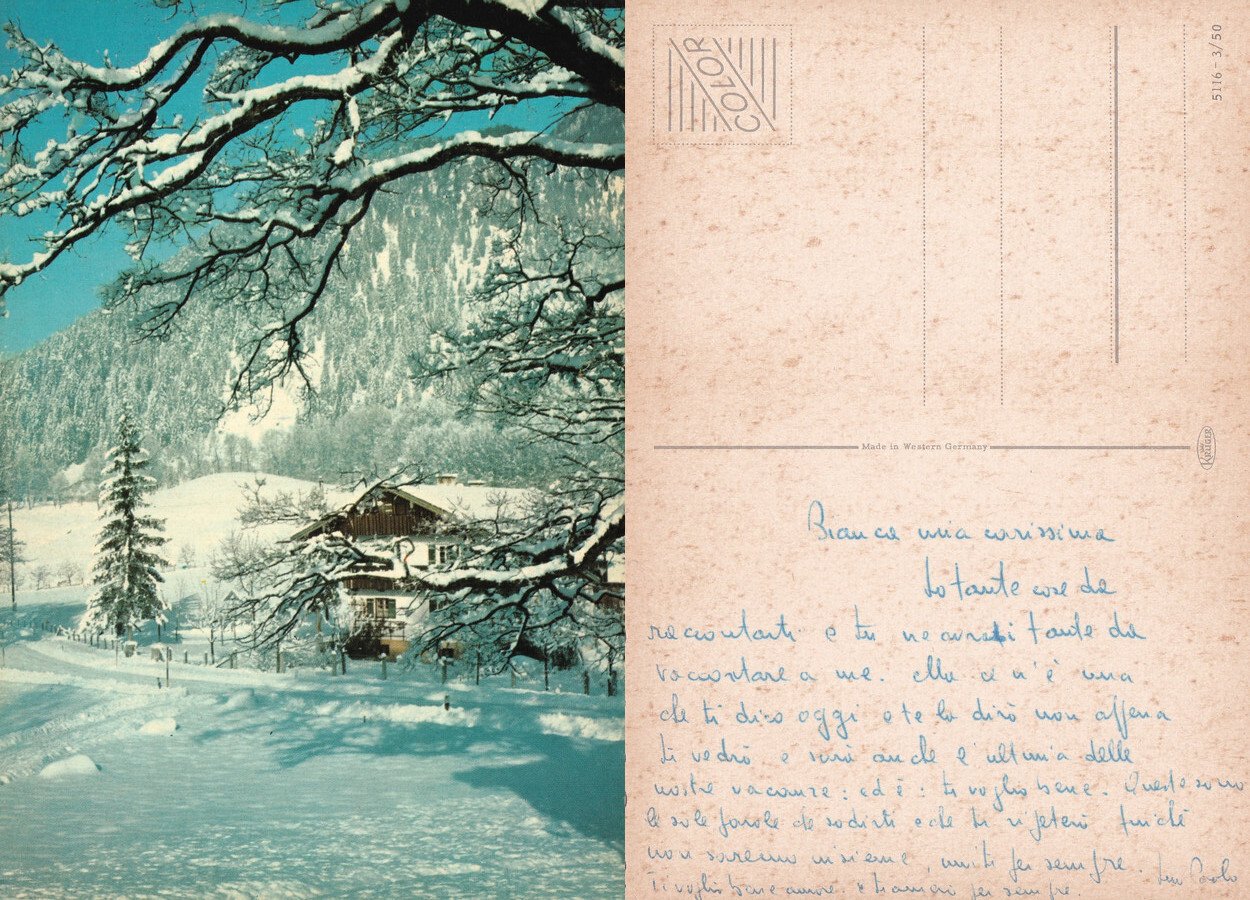 COLOR
5116 - 3/50
Made in Western Germany
KRÜGER
Bianca mia carissima
Ho tante cose da
raccontarti e tu ne avrai tante da
raccontare a me. Ma ce n'è una
che ti dico oggi e te la dirò non appena
ti vedrò e sarà anche l'ultima delle
nostre vacanze: ed è: ti voglio bene. Queste sono
le sole parole che so dirti e che ti ripeterò finché
non saremo insieme, uniti per sempre.
Ti voglio bene amore e t'amerò per sempre. tuo Paolo